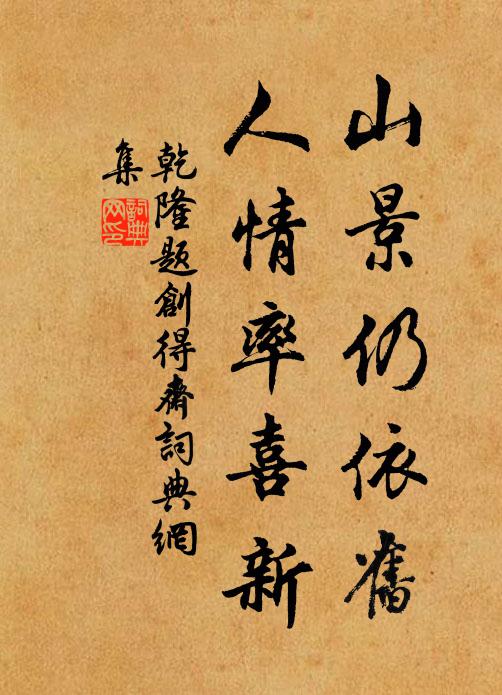 山景仍依舊
人情率喜新
乾隆題創得齋詞典網
集
詞典
网印